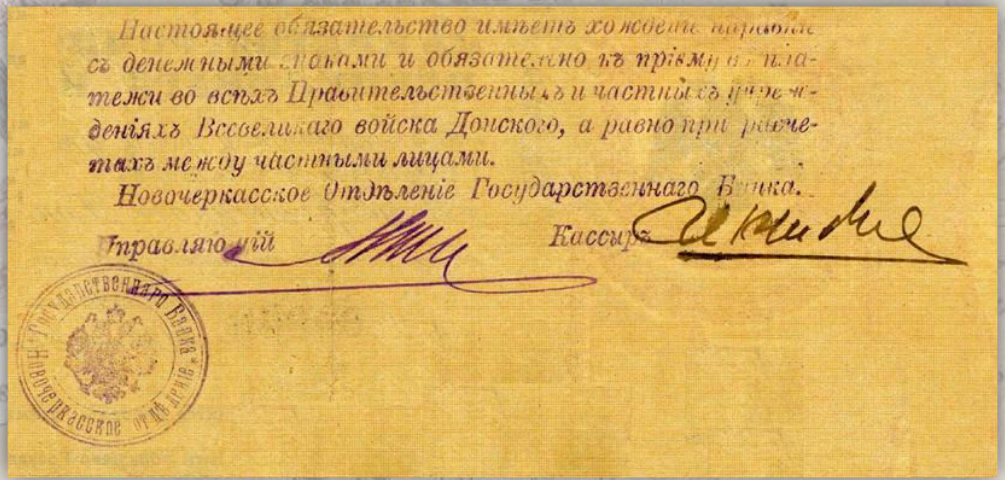 Настоящее обязательство имѣетъ хожденіе наравнѣ
съ денежными знаками и обязательно къ пріему въ пла-
тежи во всѣхъ Правительственныхъ и частныхъ учреж-
деніяхъ Всевеликаго войска Донского, а равно при расче-
тахъ между частными лицами.
Новочеркасское Отдѣленіе Государственнаго Банка.
Управляющій Кассиръ
Новочеркасское отдѣленіе Государственнаго Банка